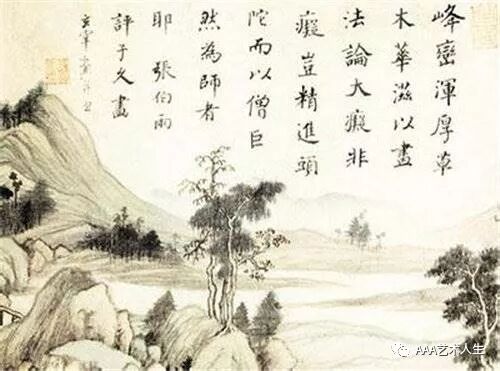 峰巒渾厚草
木華滋以畫
法論大癡非
癡豈精進頭
陀而以僧巨
然為師者
耶 張伯雨
評子久畫
玄宰
AAA艺术人生